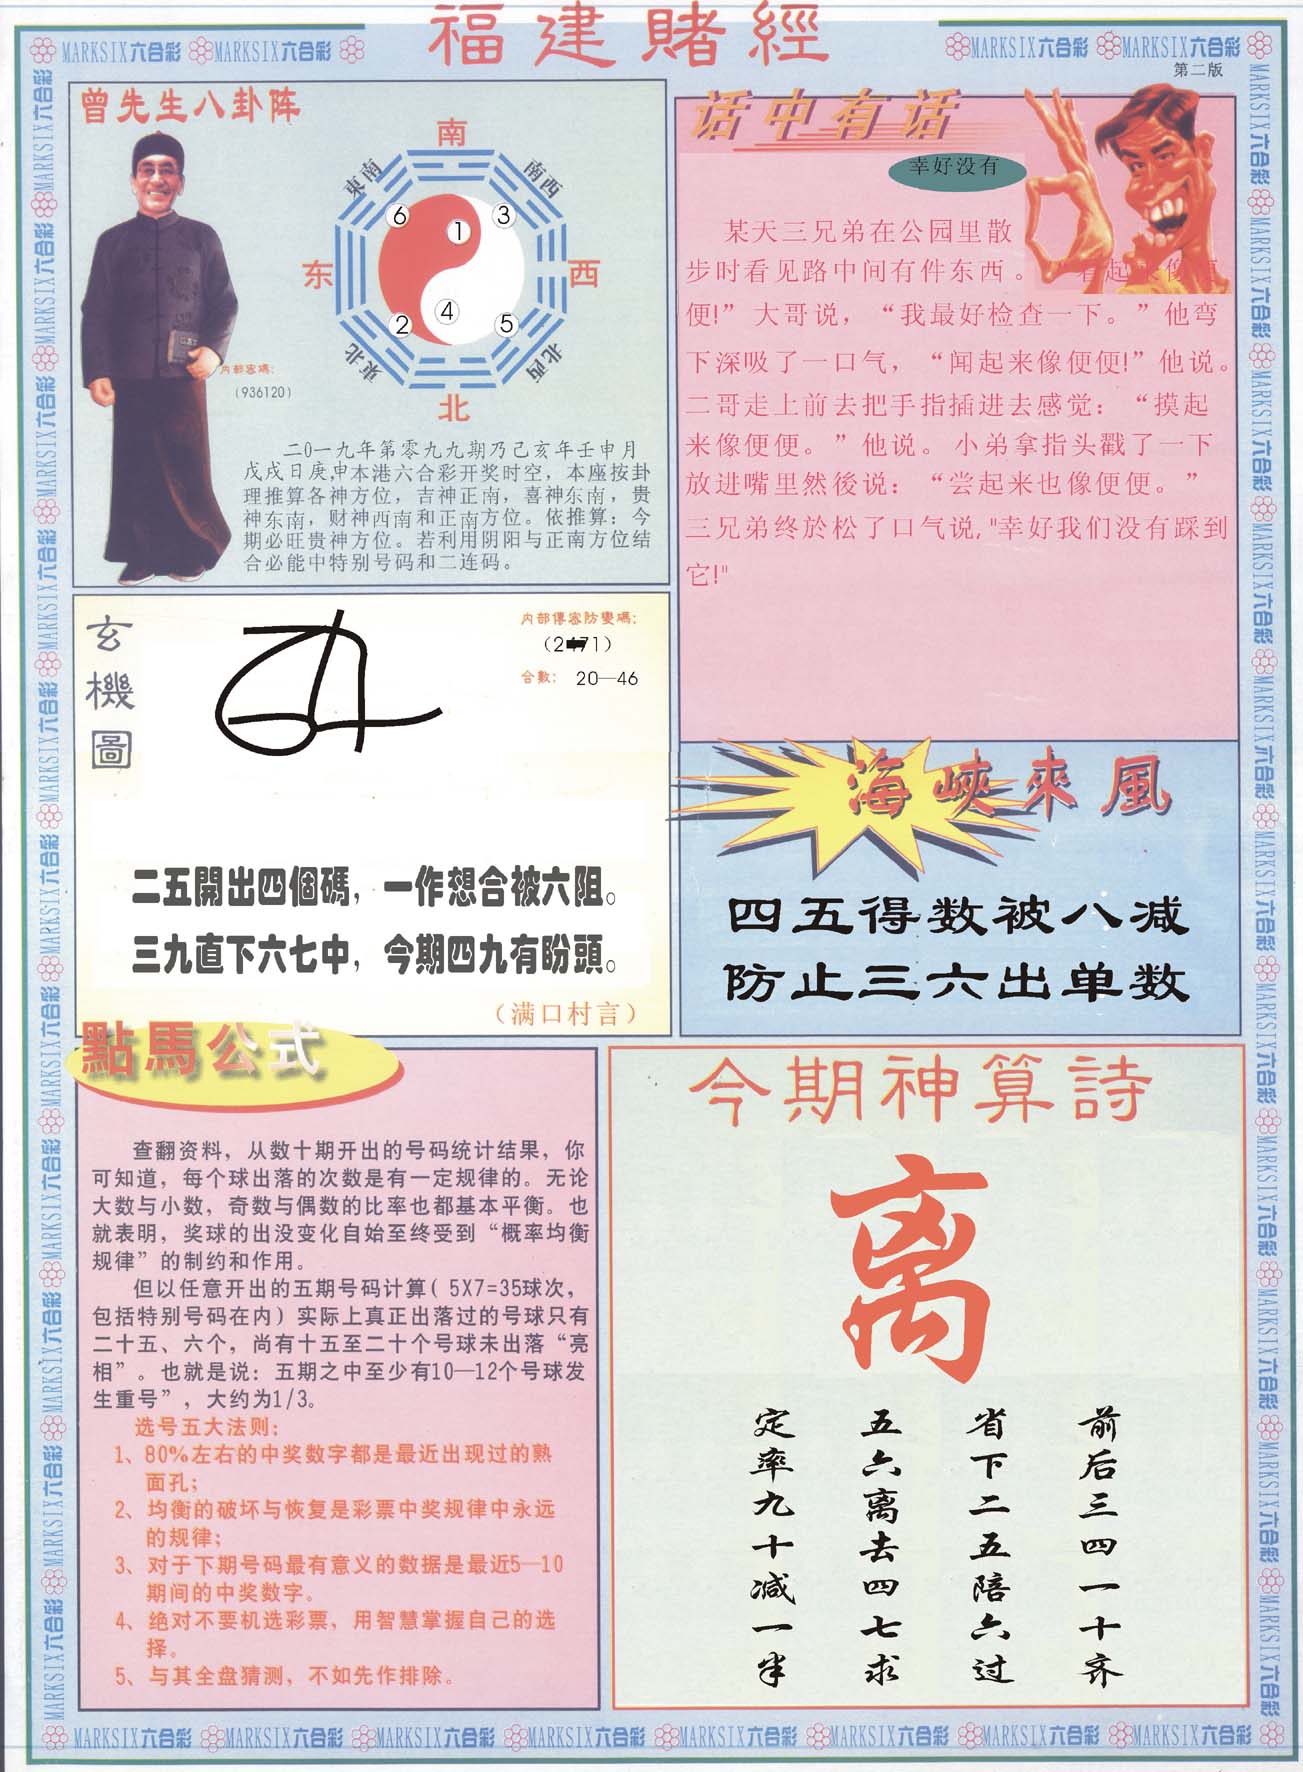 福建賭經
MARKSIX六合彩 MARKSIX六合彩
MARKSIX六合彩 MARKSIX六合彩
第二版
曾先生八卦阵
南
東南
南西
6
3
1
东
西
4
2
5
東北
北西
北
内部密碼:
(936120)
二0一九年第零九九期乃己亥年壬申月
戊戌日庚,申本港六合彩开奖时空，本座按卦
理推算各神方位，吉神正南，喜神东南，贵
神东南，财神西南和正南方位。依推算：今
期必旺贵神方位。若利用阴阳与正南方位结
合必能中特别号码和二连码。
话中有话
幸好没有
某天三兄弟在公园里散
步时看见路中间有件东西。“看起来像便
便!”大哥说，“我最好检查一下。”他弯
下深吸了一口气，“闻起来像便便!”他说。
二哥走上前去把手指插进去感觉：“摸起
来像便便。”他说。小弟拿指头戳了一下
放进嘴里然後说：“尝起来也像便便。”
三兄弟终於松了口气说,"幸好我们没有踩到
它!"
玄機圖
内部傳密防變碼:
合數: 20—46
二五開出四個碼，一作想合被六阻。
三九直下六七中，今期四九有盼頭。
（满口村言）
海峽來風
四五得数被八减
防止三六出单数
點馬公式
查翻资料，从数十期开出的号码统计结果，你
可知道，每个球出落的次数是有一定规律的。无论
大数与小数，奇数与偶数的比率也都基本平衡。也
就表明，奖球的出没变化自始至终受到“概率均衡
规律”的制约和作用。
但以任意开出的五期号码计算( 5X7=35球次，
包括特别号码在内）实际上真正出落过的号球只有
二十五、六个，尚有十五至二十个号球未出落“亮
相”。也就是说：五期之中至少有10—12个号球发
生重号”，大约为1/3。
选号五大法则：
1、80%左右的中奖数字都是最近出现过的熟
面孔；
2、均衡的破坏与恢复是彩票中奖规律中永远
的规律；
3、对于下期号码最有意义的数据是最近5—10
期间的中奖数字。
4、绝对不要机选彩票，用智慧掌握自己的选
择。
5、与其全盘猜测，不如先作排除。
今期神算詩
离
前后三四一十齐
省下二五陪六过
五六离去四七求
定率九十减一半
MARKSIX六合彩 MARKSIX六合彩 MARKSIX六合彩 MARKSIX六合彩 MARKSIX六合彩 MARKSIX六合彩 MARKSIX六合彩 MARKSIX六合彩